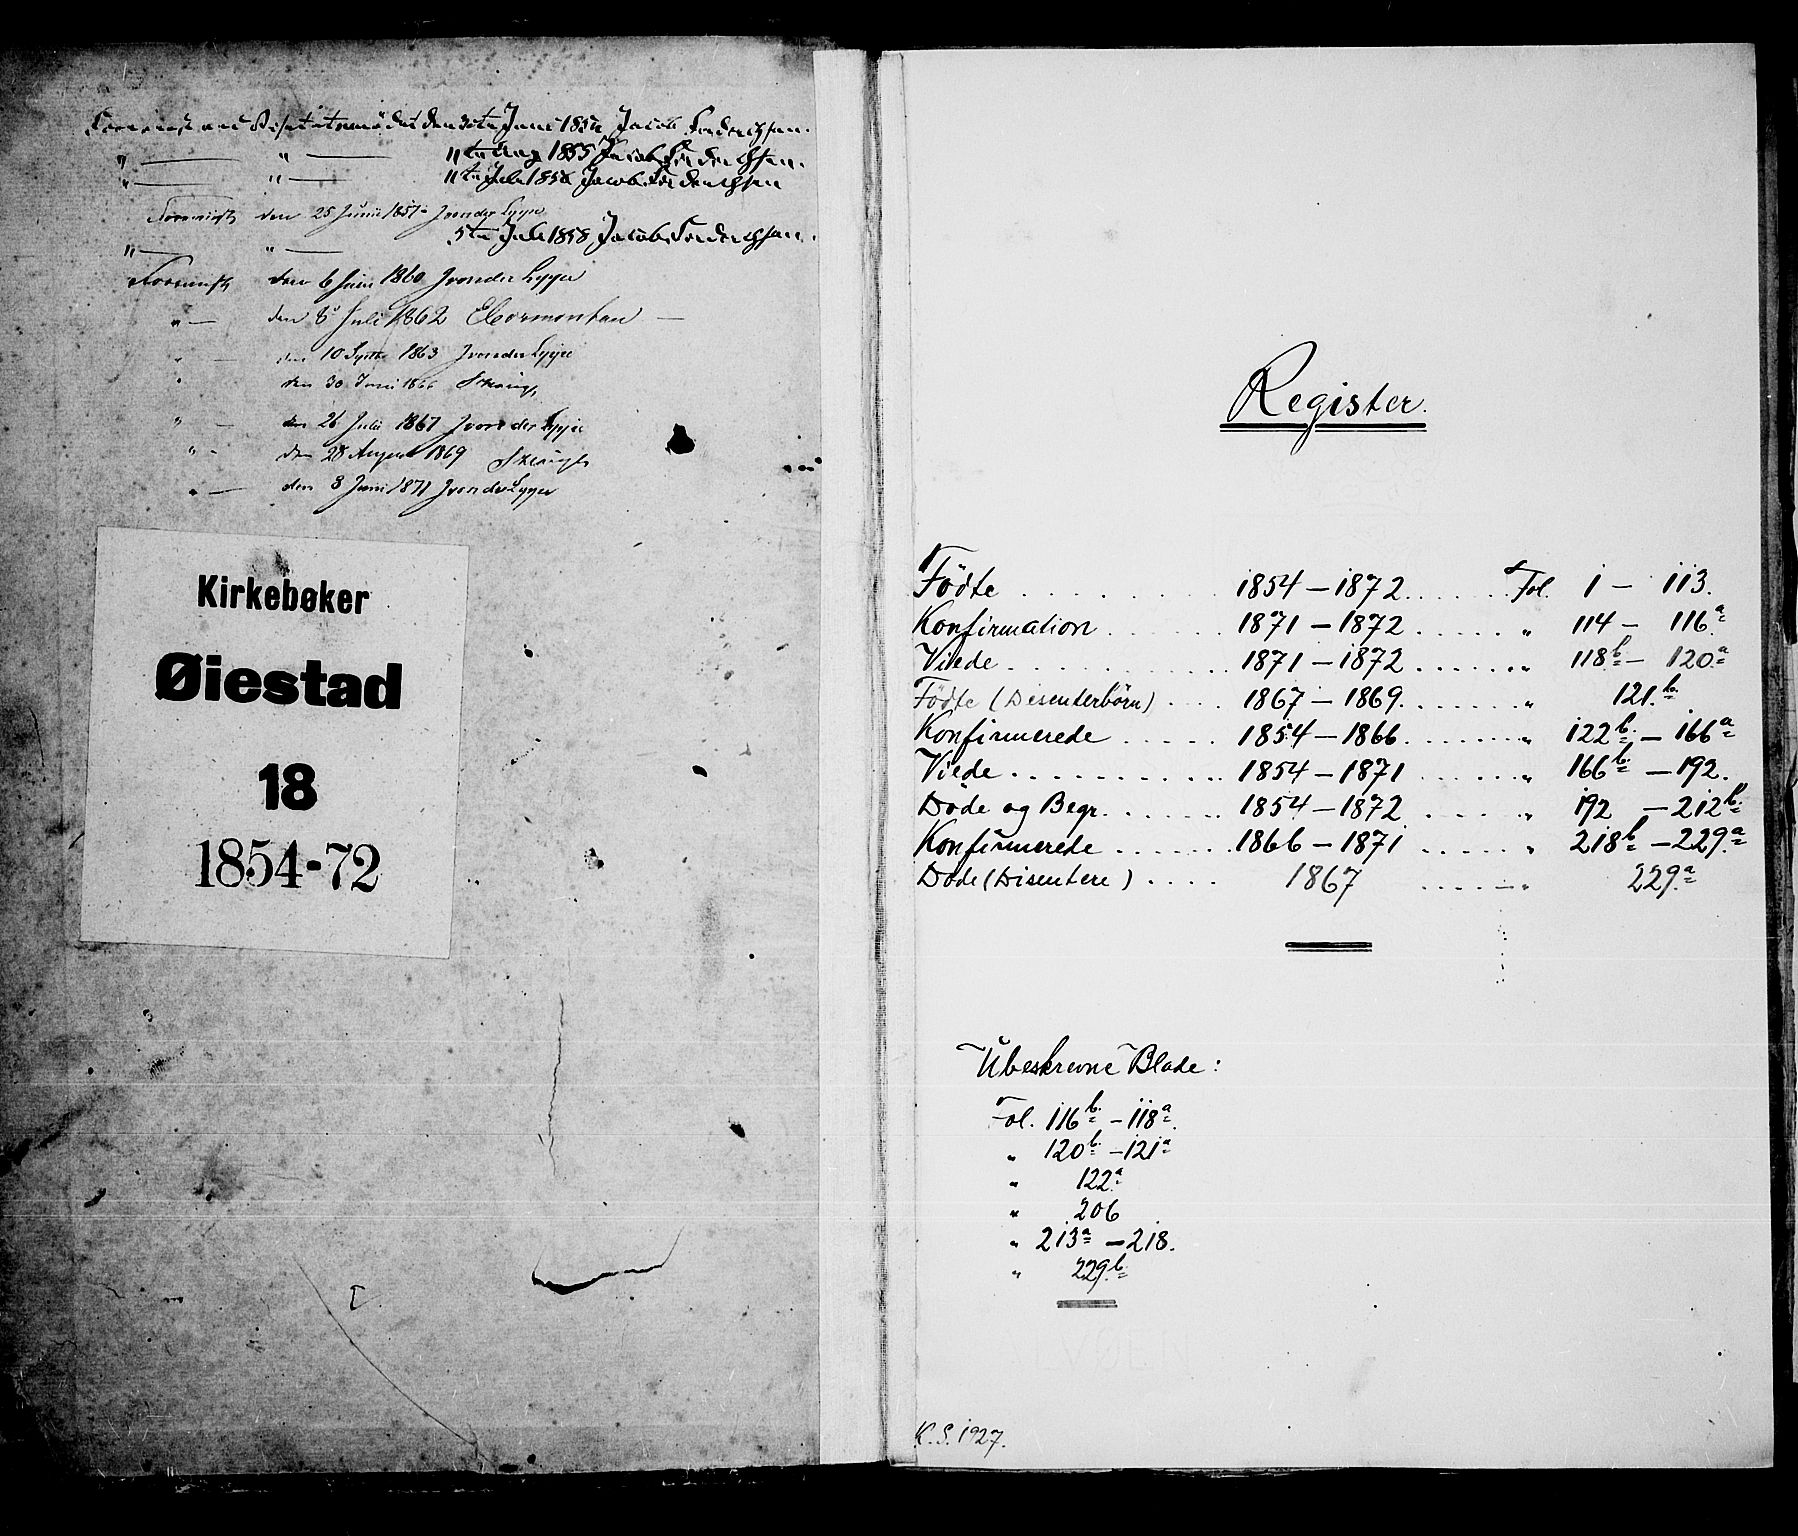 den 30te Juni 1854 Jacob Frederichsen.
" — " — 11te Aug 1855 Jacob Frederichsen.
" — " — 11te Juli 1856 Jacob Frederichsen
Foreviist den 25 Juni 1857 JvonderLippe
" — " — 5te Juli 1858 Jacob Frederichsen.
Foreviist den 6 Juni 1860 JvonderLippe
" — den 8 Juli 1862
" — den 10 Septbr 1863 JvonderLippe
" den 30 Juni 1866
" — den 26 Juli 1867 JvonderLippe
" - den 28 August 1869
" — den 8 Juni 1871 JvonderLippe
Kirkebøker
Øiestad
18
1854-72
Register.
Födte . . . . . . . . . 1854 – 1872. . . . . . . Fol. 1 – 113.
Konfirmation . . . . . . 1871 – 1872 . . . . . . " 114 – 116a
Viede . . . . . . . . . . 1871 – 1872 . . . . . . " 118b – 120a
Födte (Disenterbörn) . . . . 1867 – 1869. . . . . . . " 121b.
Konfirmerede . . . . . 1854 – 1866. . . . . . . " 122b. – 166a
Viede . . . . . . . . . . . 1854 – 1871 . . . . . . " 166b. – 192.
Döde og Begr. . . . . . . . 1854 – 1872 . . . . . " 192 – 212b.
Konfirmerede . . . . . . 1866 – 1871 . . . . . " 218b – 229.a
Döde (Disentere) . . . . 1867 . . . . . " 229.a
Ubeskrevne Blade:
Fol. 116b. – 118a.
" 120b. – 121a
" 122.a
" 206
" 213a – 218.
" 229.b.
K. S. 1927.